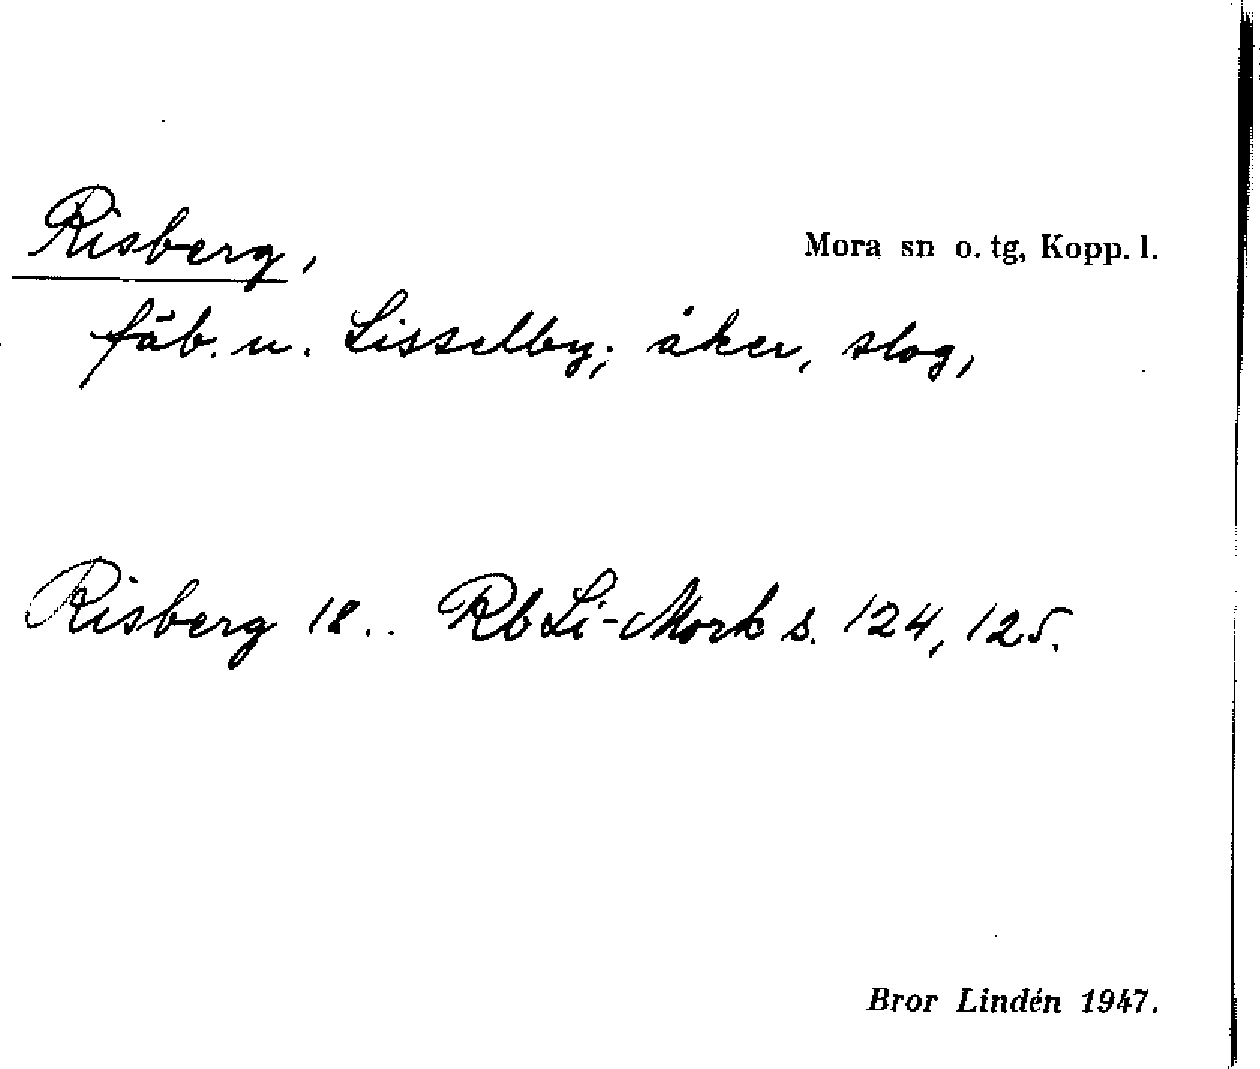 Risberg,
Mora sn o. tg, Kopp. l.
fäb. u. Lisselby; åker, slog,
Risberg 18.. Rb Li-Mork s. 124, 125.
Bror Lindén 1947.